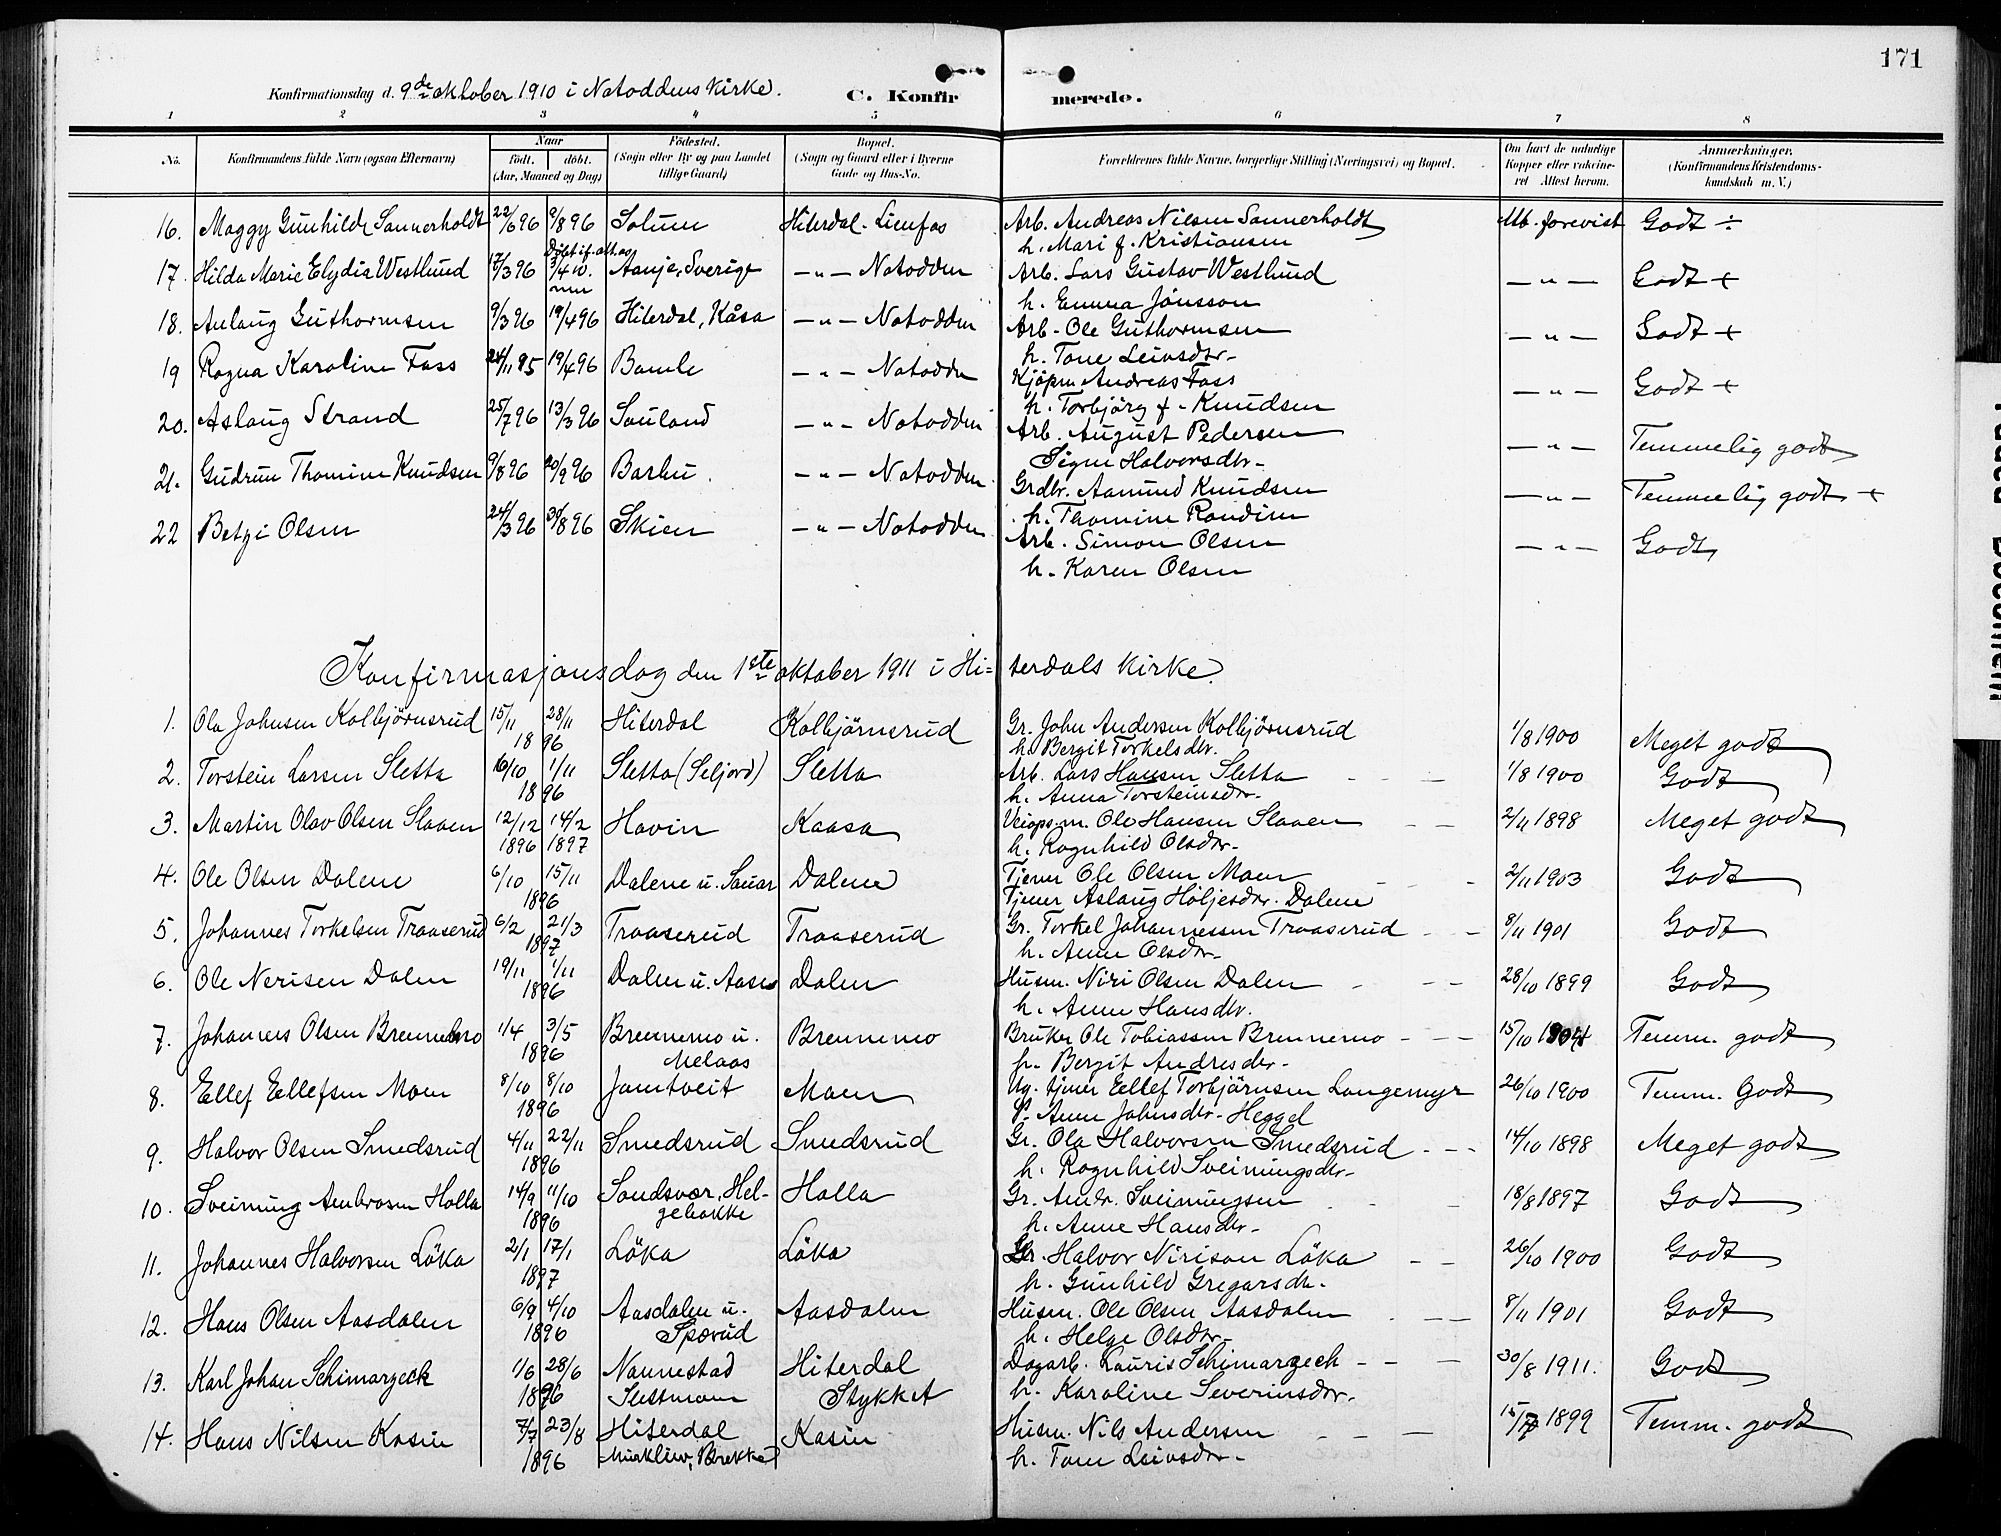 171
Konfirmationsdag d. 9de oktober 1910 i Notoddens Kirke. C. Konfirmerede.
1 2 3 4 5 6 7 8
No. Konfirmandens fulde Navn (ogsaa Efternavn) Naar født. døbt. (Aar, Maaned og Dag) Fødested. (Sogn eller By og paa Landet tillige Gaard) Bopæl. (Sogn og Gaard eller i Byerne Gade og Hus-No. Forældrenes fulde Navne, borgerlige Stilling (Næringsvei) og Bopæl. Om havt de naturlige Kopper eller vaccineret Attest herom. Anmærkninger. (Konfirmandens Kristendomskundskab m. V.)
16. Maggy Gunhilde Sannerholdt 22/6 96 9/8 96 Solum Hiterdal. Lienfos Arb. Andreas Nilsen Sannerholdt Att. forevist Godt ÷
h. Mari f. Kristiansen
17. Hilda Marie Elydia Westlund 17/3 96 3/4 Aanje, Sverige — " — Notodden Arb. Lars Gustav Westlund — " — Godt +
h. Emma Jönsson
18. Aslaug Guthormsen 9/3 96 19/4 96 Hiterdal, Kåsa — " — Notodden Arb. Ole Guthormsen — " — Godt +
h. Tone Leivsdtr.
19 Ragna Karoline Fass 24/11 95 19/4 96 Bamle — " — Notodden Kjöpm Andreas Fass — " — Godt +
h. Torbjörg f. Knudsen
20. Aslaug Strand 25/7 96 13/3 96 Sauland — " — Notodden Arb. August Pedersen — " — Temmelig godt
Signe Halvorsdtr.
21. Gudrun Thomine Knudsen 9/8 96 20/9 96 Barbu — " — Notodden Grdbr. Aamund Knudsen — " — Temmelig godt +
h. Thomine Randine
22 Betzi Olsen 24/3 96 30/8 96 Skien — " — Notodden Arb. Simon Olsen — " — Godt
h. Karen Olsen
Konfirmasjonsdag den 1ste oktober 1911 i Hiterdals Kirke.
1. Ola Johnsen Kolbjørnsrud 15/11 28/11 1896 Hiterdal Kolbjørnsrud Gr. John Andersen Kolbjørnsrud 1/8 1900 Meget godt
h. Bergit Torkelsdtr.
2. Torstein Larsen Sletta 16/10 1/11 1896 Sletta (Seljord) Sletta Arb. Lars Hansen Sletta 1/8 1900 Godt
h. Anna Torsteinsdtr.
3. Martin Olav Olsen Slaaen 12/12 1896 14/2 1897 Hovin Kaasa Veiops.m. Ole Hansen Slaaen 2/11 1898 Meget godt
h. Ragnhild Olsdtr.
4. Ole Olsen Dalene 6/10 15/11 1896 Dalene u. Sauar Dalene Tjener Ole Olsen Moen 2/11 1903 Godt
Tjener Aslaug Höljesdtr. Dalene
5. Johannes Torkelsen Traaserud 6/2 21/3 1897 Traaserud Traaserud Gr. Torkel Johannessen Traaserud 8/11 1901 Godt
h. Anne Olsdtr.
6. Ole Nerisen Dalen 19/11 1/11 1896 Dalen u. Aasen Dalen Husm. Niri Olsen Dalen 28/10 1899 Godt
h. Anne Hansdtr.
7. Johannes Olsen Brennemo 1/4 3/5 1896 Brennemo u. Melaas Brennemo Bruker Ole Tobiassen Brennemo 15/10 1904 Temm. godt
h. Bergit Andresdtr.
8. Ellef Ellefsen Moen 8/10 8/10 1896 Jamtveit Moen Ug. tjener Ellef Torbjørnsen Langemyr 26/10 1900 Temm. Godt
P. Anne Johnsdtr. Heggel
9. Halvor Olsen Smedsrud 4/11 22/11 1896 Smedsrud Smedsrud Gr. Ola Halvorsen Smedsrud 14/10 1898 Meget godt
h. Ragnhild Sveinungsdtr.
10. Sveinung Ambrosen Holla 14/9 11/10 1896 Sandsvær, Helgebakke Holla Gr. Ambr. Sveinungsen 18/8 1897 Godt
h. Anne Hansdtr.
11. Johannes Halvorsen Löka 2/1 17/1 1897 Löka Löka Gr. Halvor Nirison Löka 26/10 1900 Godt
h. Gunhild Gregarsdtr.
12. Hans Olsen Aasdalen 6/9 4/10 1896 Aasdalen u. Spærud Aasdalen Husm. Ole Olsen Aasdalen 8/11 1901 Godt
h. Helge Olsdtr.
13. Karl Johan Schimarzeck 1/6 28/6 1896 Nannestad Slettmoen Hiterdal Stykket Dagarb. Lauris Schimarzeck 30/8 1911. Godt
h. Karoline Severinsdtr.
14. Hans Nilsen Kasin 7/7 23/8 1896 Hiterdal Kasin Husm. Nils Andersen 1899 Temm. godt
h. Tone Leivsdtr.